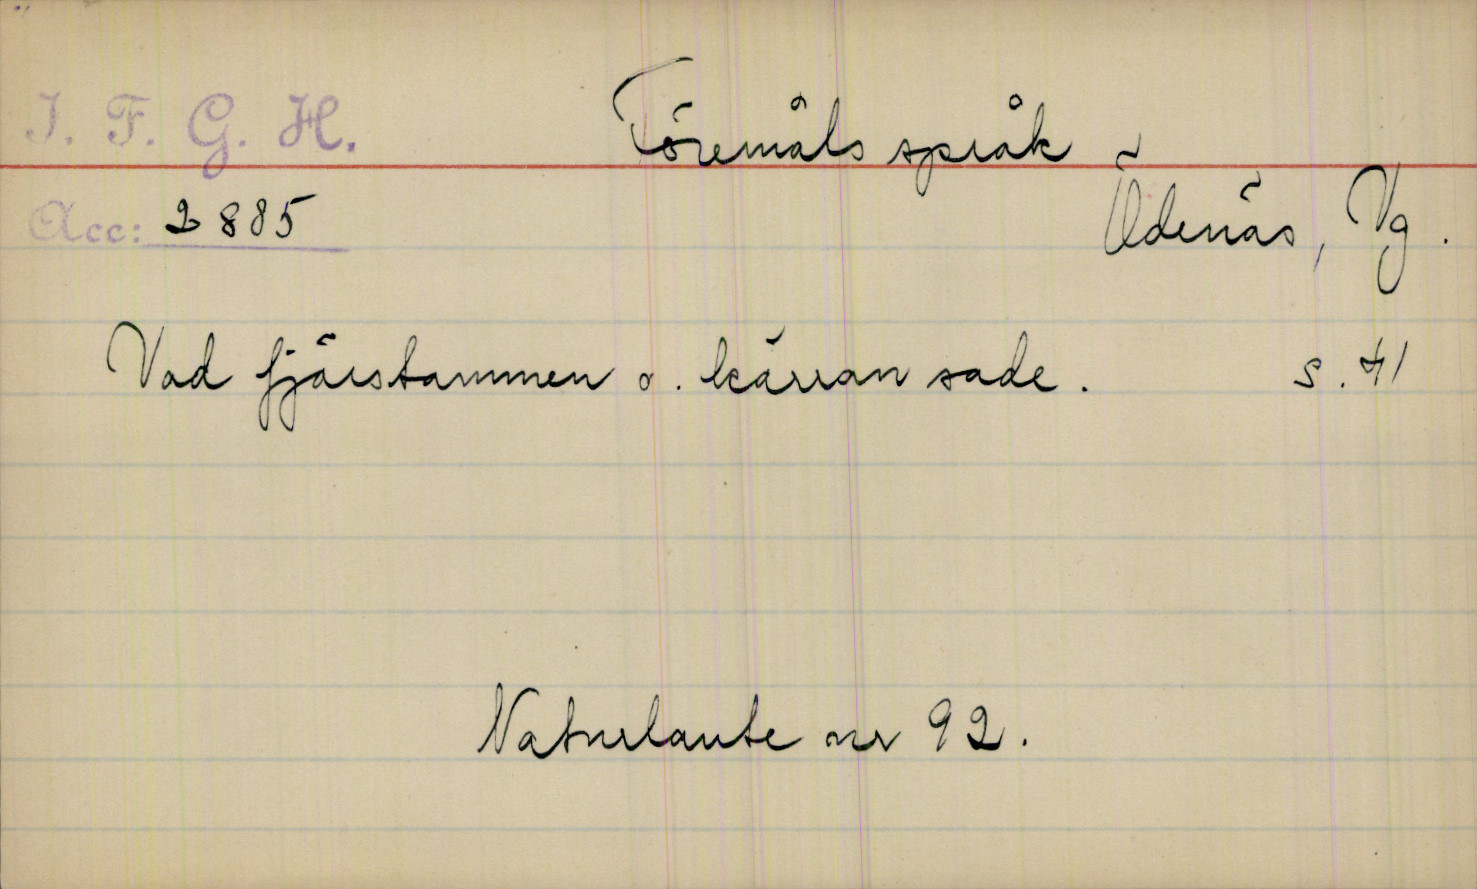 I. F. G. H.
Föremåls språk
Acc: 2885
Ödenäs, Vg.
Vad fjärstammen o. kärran sade. s. 41
Naturlaute nr 92.